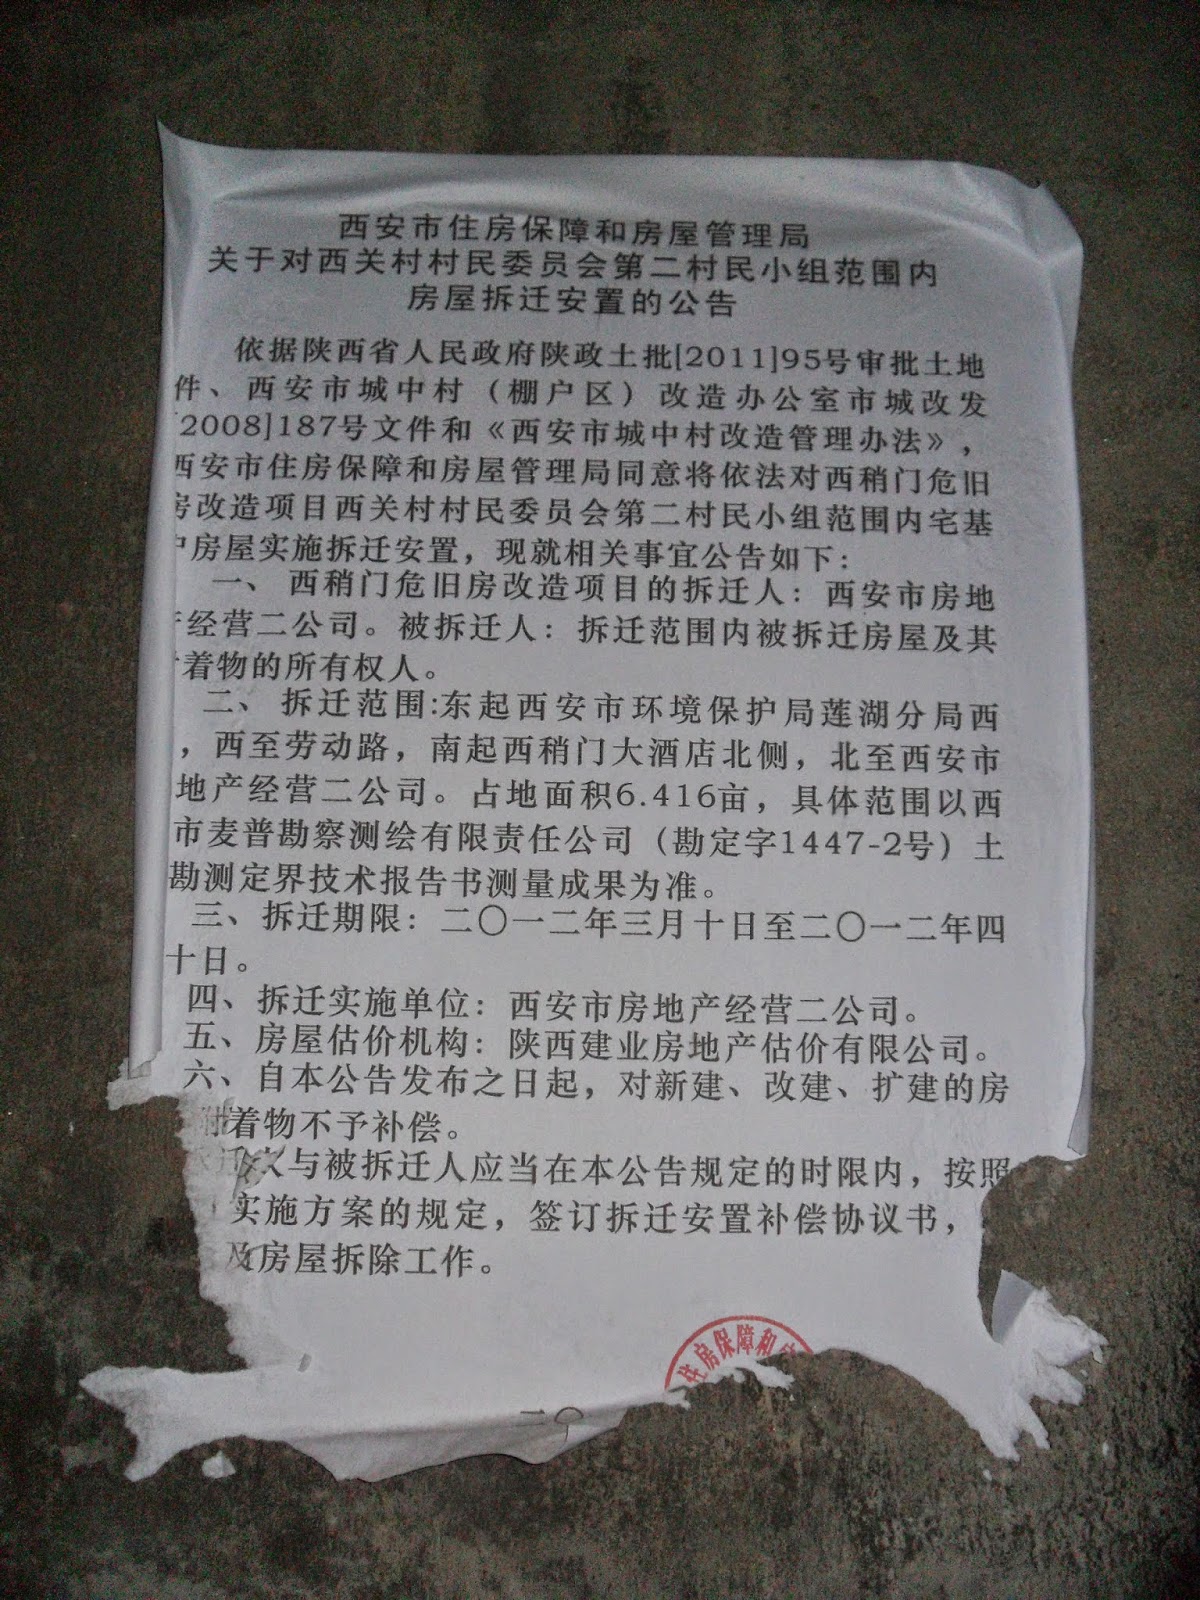 西安市住房保障和房屋管理局
关于对西关村村民委员会第二村民小组范围内
房屋拆迁安置的公告
依据陕西省人民政府陕政土批[2011]95号审批土地
件、西安市城中村（棚户区）改造办公室市城改发
[2008]187号文件和《西安市城中村改造管理办法》，
西安市住房保障和房屋管理局同意将依法对西稍门危旧
房改造项目西关村村民委员会第二村民小组范围内宅基
户房屋实施拆迁安置，现就相关事宜公告如下：
一、 西稍门危旧房改造项目的拆迁人：西安市房地
经营二公司。被拆迁人：拆迁范围内被拆迁房屋及其
着物的所有权人。
二、 拆迁范围:东起西安市环境保护局莲湖分局西
，西至劳动路，南起西稍门大酒店北侧，北至西安市
地产经营二公司。占地面积6.416亩，具体范围以西
市麦普勘察测绘有限责任公司（勘定字1447-2号）土
勘测定界技术报告书测量成果为准。
三、拆迁期限：二〇一二年三月十日至二〇一二年四
十日。
四、拆迁实施单位：西安市房地产经营二公司。
五、房屋估价机构：陕西建业房地产估价有限公司。
六、自本公告发布之日起，对新建、改建、扩建的房
附着物不予补偿。
迁人与被拆迁人应当在本公告规定的时限内，按照
实施方案的规定，签订拆迁安置补偿协议书，
及房屋拆除工作。
住房保障和
二〇